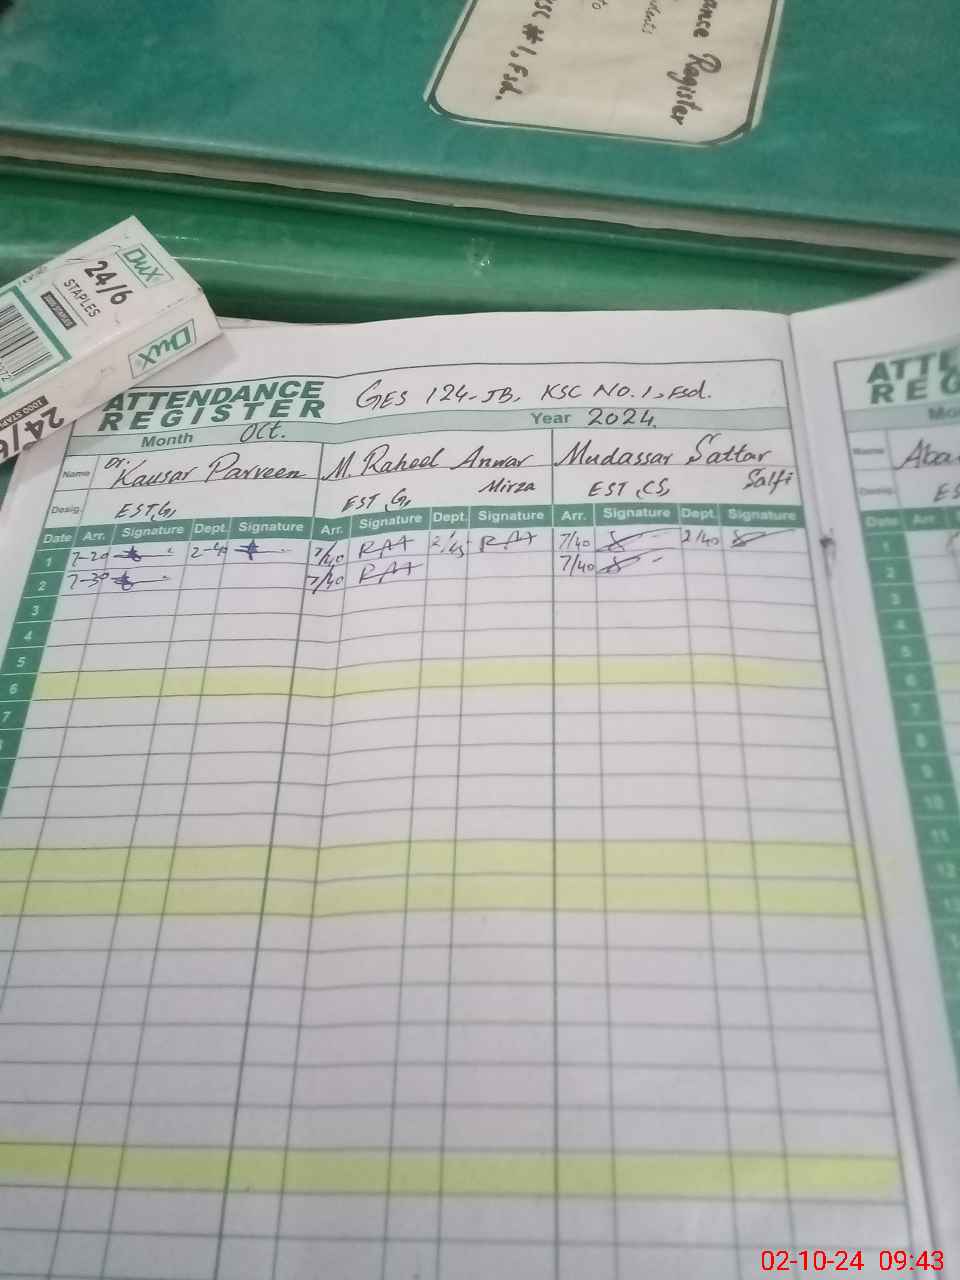 ance Register
dents
to
KSC # 1, Fsd.
DUX
24/6
STAPLES
DUX
1000 STAPLES
24/6
ATTENDANCE
REGISTER
GES 124-JB, KSC NO. 1, Fsd.
Month Oct. Year 2024
Name Dr. Kausar Parveen M. Raheel Anwar Mirza Mudassar Sattar Salfi
Desig. EST, G, EST, G, EST, CS,
Date Arr. Signature Dept. Signature Arr. Signature Dept. Signature Arr. Signature Dept. Signature
1 7-20 2-40 7/40 RAA 2/45 RAA 7/40 2/40
2 7-30 7/40 RAA 7/40
3
4
5
6
7
ATTE
REG
Mo
Name Aba
Desig. ES
Date Arr.
1
2
3
4
5
6
7
8
9
10
11
12
02-10-24 09:43